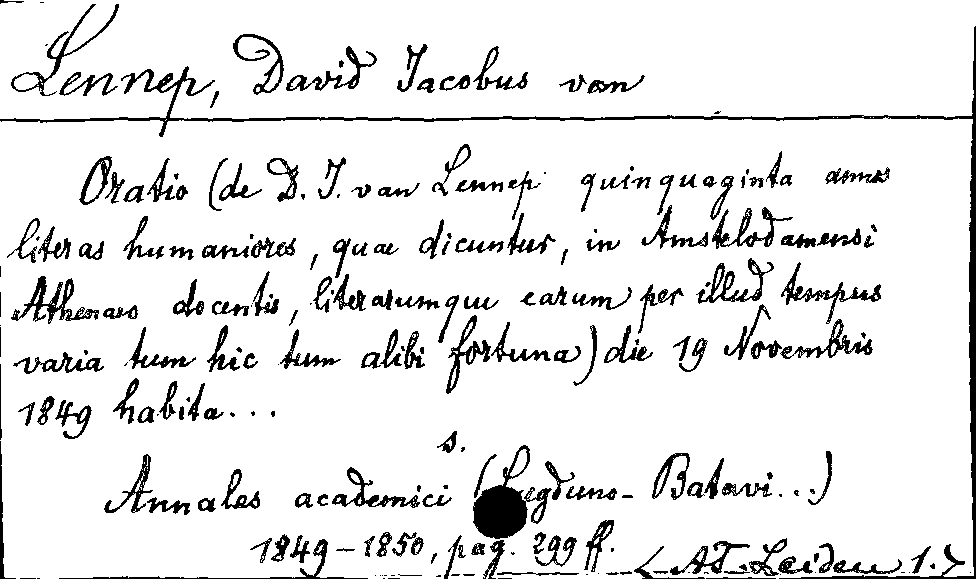 Lennep, David Jacobus van
Oratio (de D. J. van Lennep quinquaginta annos
literas humaniores, quae dicuntur, in Amstelodamensi
Athenaeo docentis, literarumque earum per illud tempus
varia tum hic tum alibi fortuna) die 19 Novembris
1849 habita...
s.
Annales academici (Lugduno-Batavi...)
1849-1850, pag. 299 ff.
< AT. Leiden 1.>